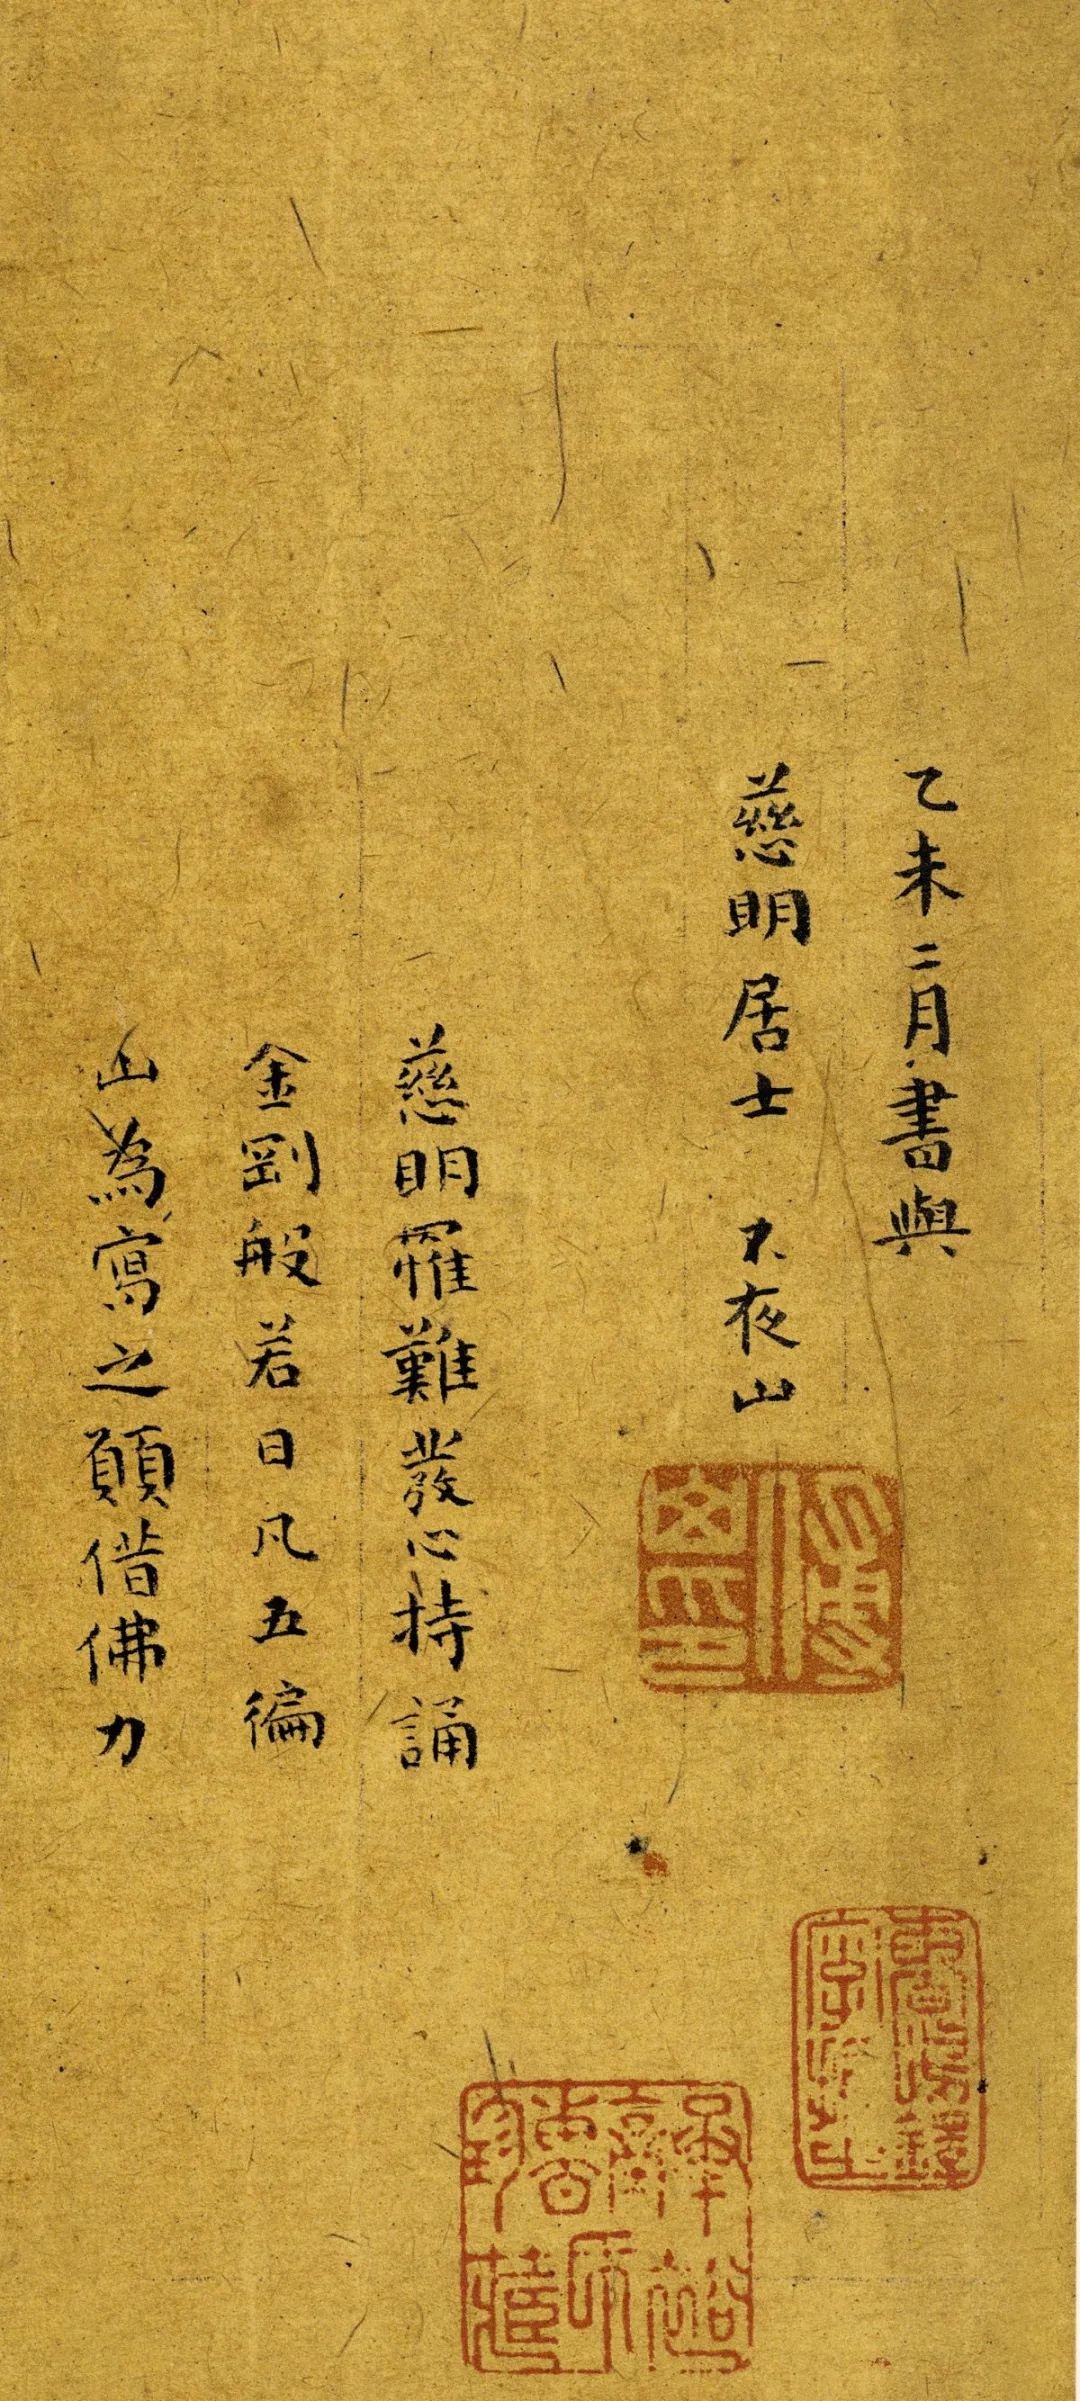 乙未二月書與
慈明居士 不夜山
慈明罹難發心持誦
金剛般若日凡五徧
山為寫之願借佛力